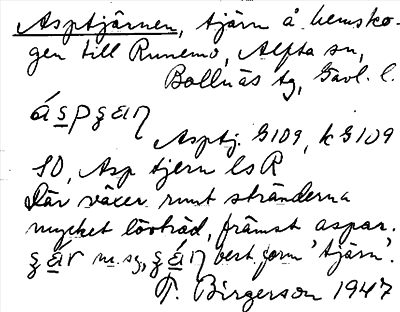 Asptjärnen, tjärn å hemsko-
gen till Runemo, Alfta sn,
Bollnäs tg, Gävl. l.
áspʂæŋ
Asptj. G109, k G109
SO, Asp tjern ls R
Där växer runt stränderna
mycket lövträd, främst aspar.
ʂǽr n. sg, ʂǽŋ best. form 'tjärn'.
T. Birgerson 1947